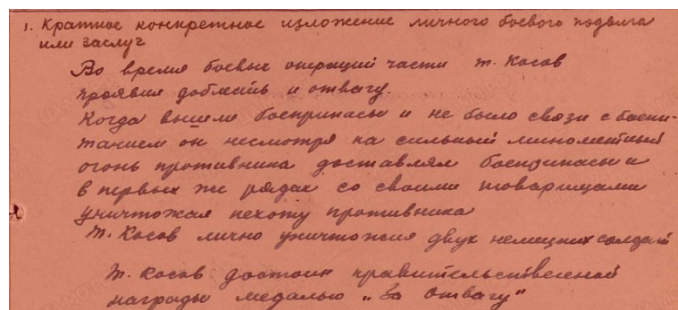 1. Краткое конкретное изложение личного боевого подвига
или заслуг
Во время боевых операций части т. Косов
проявил доблесть и отвагу.
Когда вышли боеприпасы и не было связи с боепи-
танием он несмотря на сильный минометный
огонь противника доставлял боеприпасы и
в первых же рядах со своими товарищами
уничтожал пехоту противника
Т. Косов лично уничтожил двух немецких солдат
Т. Косов достоин правительственной
награды медалью „За отвагу"